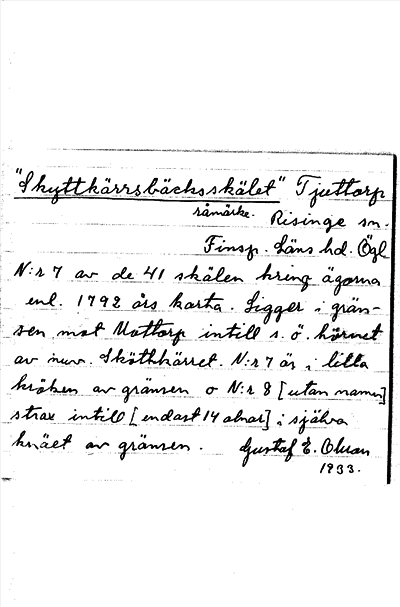 "Skyttkärrsbäcksskälet" Tjuttorp
råmärke. Risinge sn.
Finsp. Läns hd. Ögl
N:r 7 av de 41 skälen kring ägorna
enl. 1792 års karta. Ligger i grän-
sen mot Mattorp intill s. ö. hörnet
av nuv. Skötthärret. N:r 7 är i lilla
kröken av gränsen o N:r 8 [utan namn]
strax intill [endast 14 alnar] i själva
knäet av gränsen. Gustaf E. Olsson
1933.